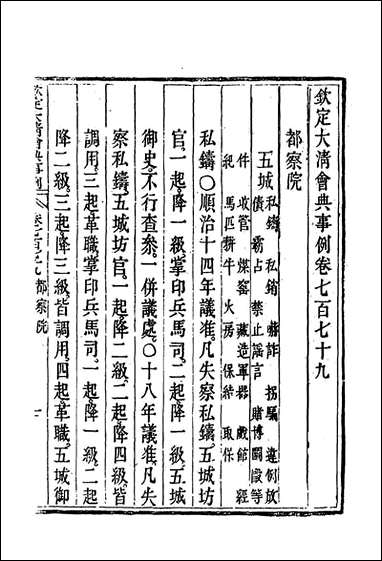 欽定大清會典事例卷七百七十九
都察院
五城私鑄 私銷 赫詐 拐騙 違例放
債 霸占 禁止謠言 賭博鬬毆等
件 收管 煤窰 藏造軍器 戲館 經
紀 馬匹耕牛 火房 保結 取保
私鑄〇順治十四年議准凡失察私鑄五城坊
官一起降一級兵馬司二起降一級五城
御史不行查叅一併議處〇十八年議准凡失
察私鑄五城坊官一起降二級二起降四級皆
調用三起革職掌印兵馬司一起降一級二起
降二級三起降三級皆調用四起革職五城御
欽定大清會典事例 卷七百七十九 都察院 一